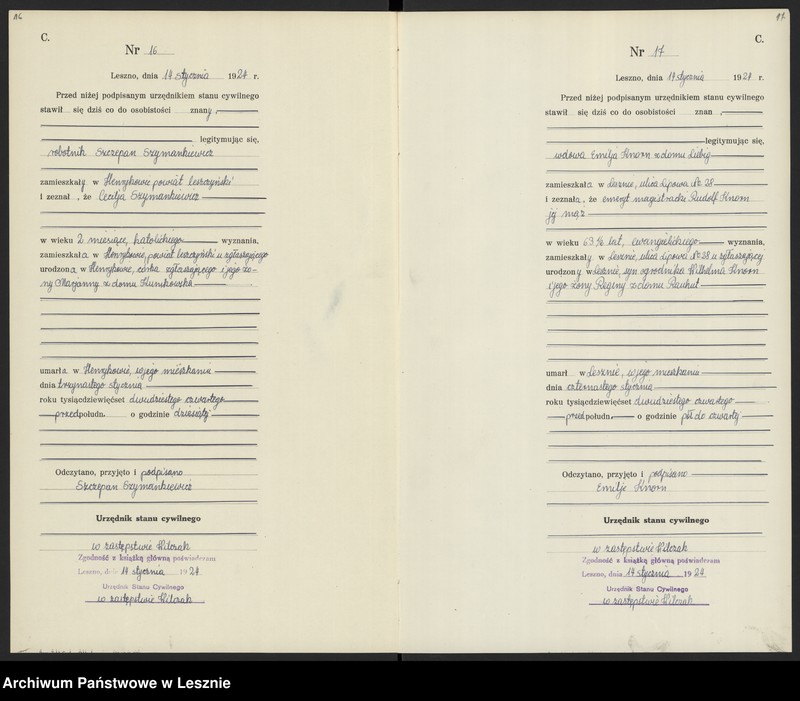 16
C.
Nr 16
Leszno, dnia 14 stycznia 1924 r.
Przed niżej podpisanym urzędnikiem stanu cywilnego
stawił się dziś co do osobistości znany,
legitymując się,
robotnik Szczepan Szymankiewicz
zamieszkały w Henrykowie powiat Leszczyński
i zeznał, że Cecilja Szymankiewicz
w wieku 2 miesiące, katolickiego wyznania,
zamieszkała w Henrykowie, powiat leszczyński u zgłaszającego
urodzona w Henrykowie, córka zgłaszającego i jego żo-
ny Marjanny z domu
umarła w Henrykowie, w jego mieszkaniu
dnia trzynastego stycznia
roku tysiącdziewięćset dwudziestego czwartego
przedpołudn. o godzinie dziesiątej
Odczytano, przyjęto i podpisano
Szczepan Szymankiewicz
Urzędnik stanu cywilnego
w zastępstwie
Zgodność z książką główną poświadczam
Leszno, dnia 14 stycznia 1924
Urzędnik Stanu Cywilnego
w zastępstwie
17
C.
Nr 17
Leszno, dnia 14 stycznia 1924 r.
Przed niżej podpisanym urzędnikiem stanu cywilnego
stawił się dziś co do osobistości znan
legitymując się,
wdowa Emilja Knorn z domu Liebig
zamieszkała w Lesznie, ulica Lipowa Nr 28
i zeznała, że emeryt magistracki Rudolf Knorn
jej mąż
w wieku 63 lat, ewangielickiego wyznania,
zamieszkały w Lesznie, ulica Lipowa Nr 28 u zgłaszającej
urodzony w Lesznie, syn ogrodnika Wilhelma Knorn
i jego żony Reginy z domu Rauhut
umarł w Lesznie, w jego mieszkaniu
dnia czternastego stycznia
roku tysiącdziewięćset dwudziestego czwartego
przedpołudn. o godzinie pół do czwartej
Odczytano, przyjęto i podpisano
Emilje Knorn
Urzędnik stanu cywilnego
w zastępstwie
Zgodność z książką główną poświadczam
Leszno, dnia 14 stycznia 1924
Urzędnik Stanu Cywilnego
w zastępstwie
Archiwum Państwowe w Lesznie